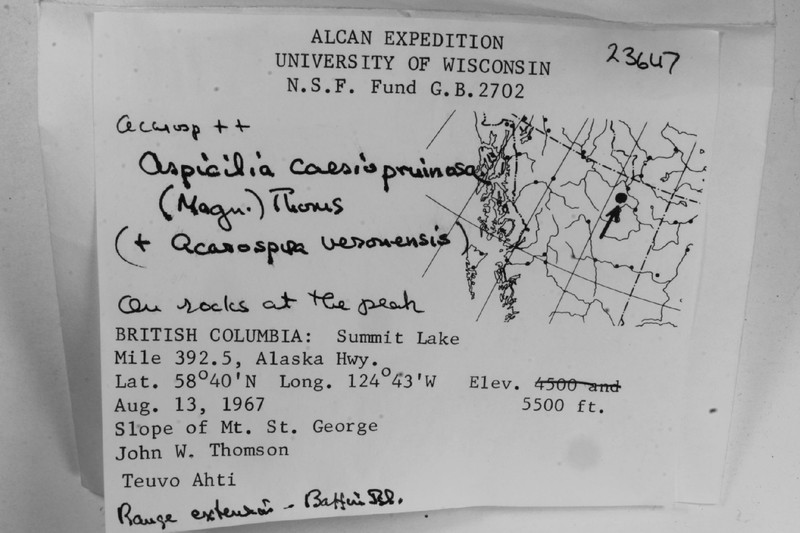 ALCAN EXPEDITION
UNIVERSITY OF WISCONSIN
N.S.F. Fund G.B.2702
23647
acarosp ++
Aspicilia caesiopruinosa
(Magn.) Thoms
(+ Acarospora veronensis)
On rocks at the peak
BRITISH COLUMBIA: Summit Lake
Mile 392.5, Alaska Hwy.
Lat. 58°40'N Long. 124°43'W Elev. 4500 and
Aug. 13, 1967 5500 ft.
Slope of Mt. St. George
John W. Thomson
Teuvo Ahti
Range extension - Baffin Isl.